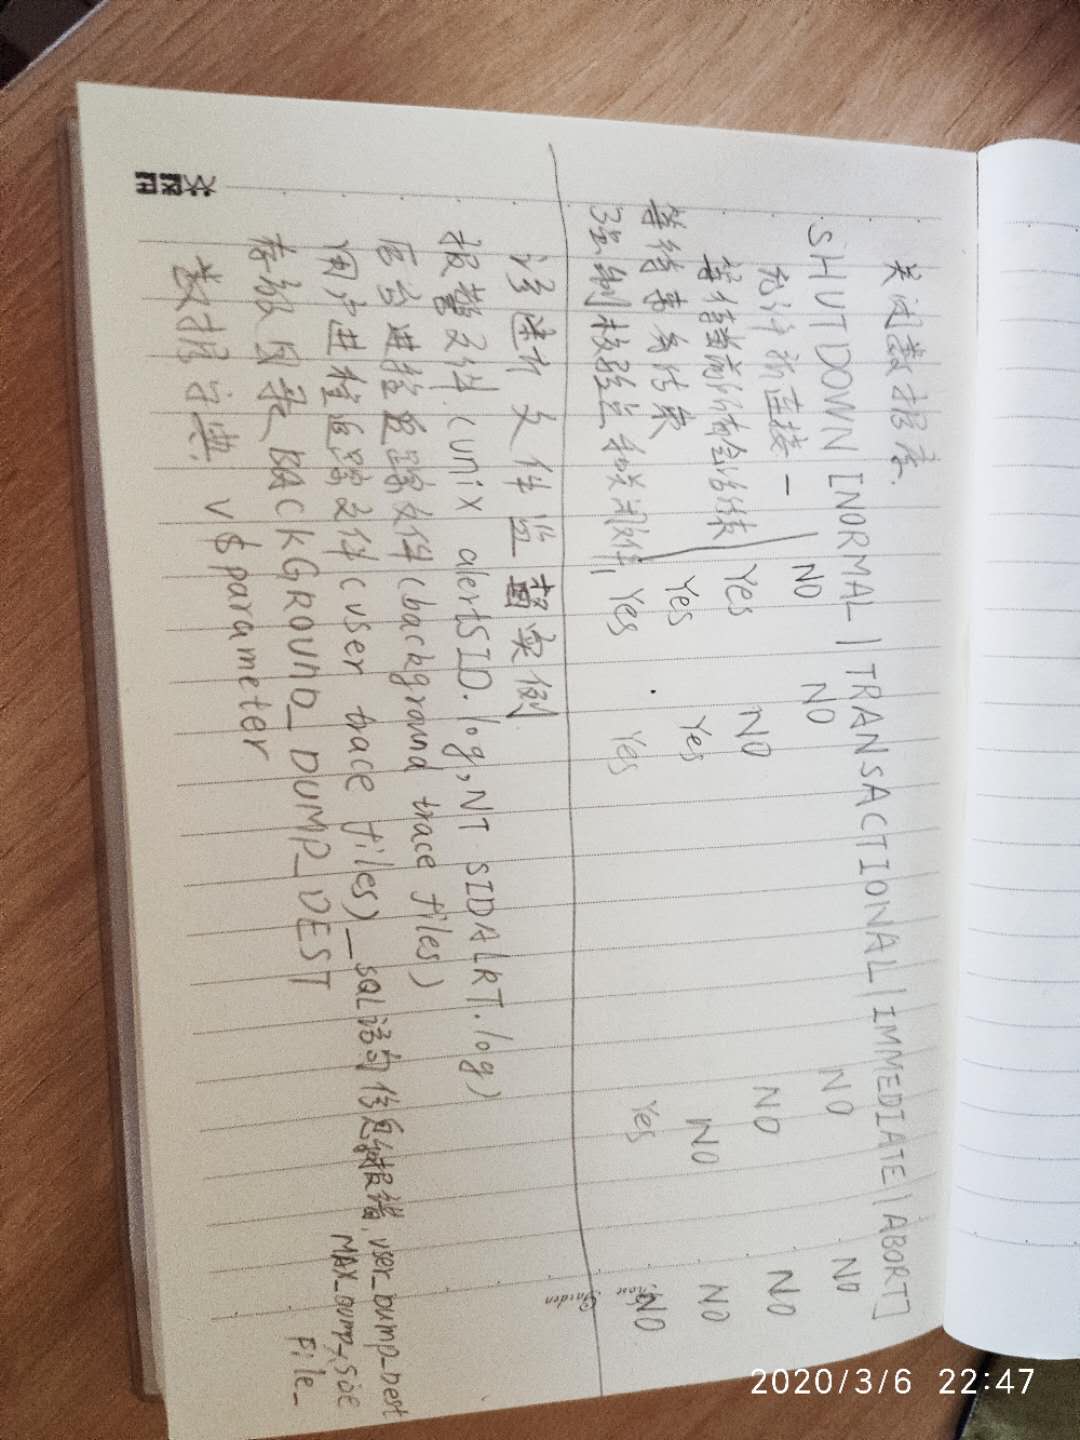 关闭数据库.
SHUTDOWN [NORMAL | TRANSACTIONAL | IMMEDIATE | ABORT]
允许新连接 — NO NO NO NO
等待当前所有会话结束 Yes NO NO NO
等待事务结束 Yes Yes NO NO
强制检验点和关闭文件, Yes Yes Yes NO
诊断文件监督实例
报警文件(unix alertSID.log, NT SIDALRT.log)
后台进程追踪文件(background trace files)
用户进程追踪文件(user trace files)_SQL语句信息报错, user_dump_dest
MAX_dump_size
File_
存放目录 BACKGROUND_DUMP_DEST
数据字典 v$parameter
2020/3/6 22:47